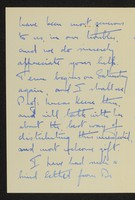 have been most generous
to us, in our troubles,
and we do sincerely
appreciate your help.
Term begins on Saturday
again, and I shall see
Prof. there,
and will talk with him
about the best way of
distributing the
most welcome gift.
I have had such a
kind letter from Dr